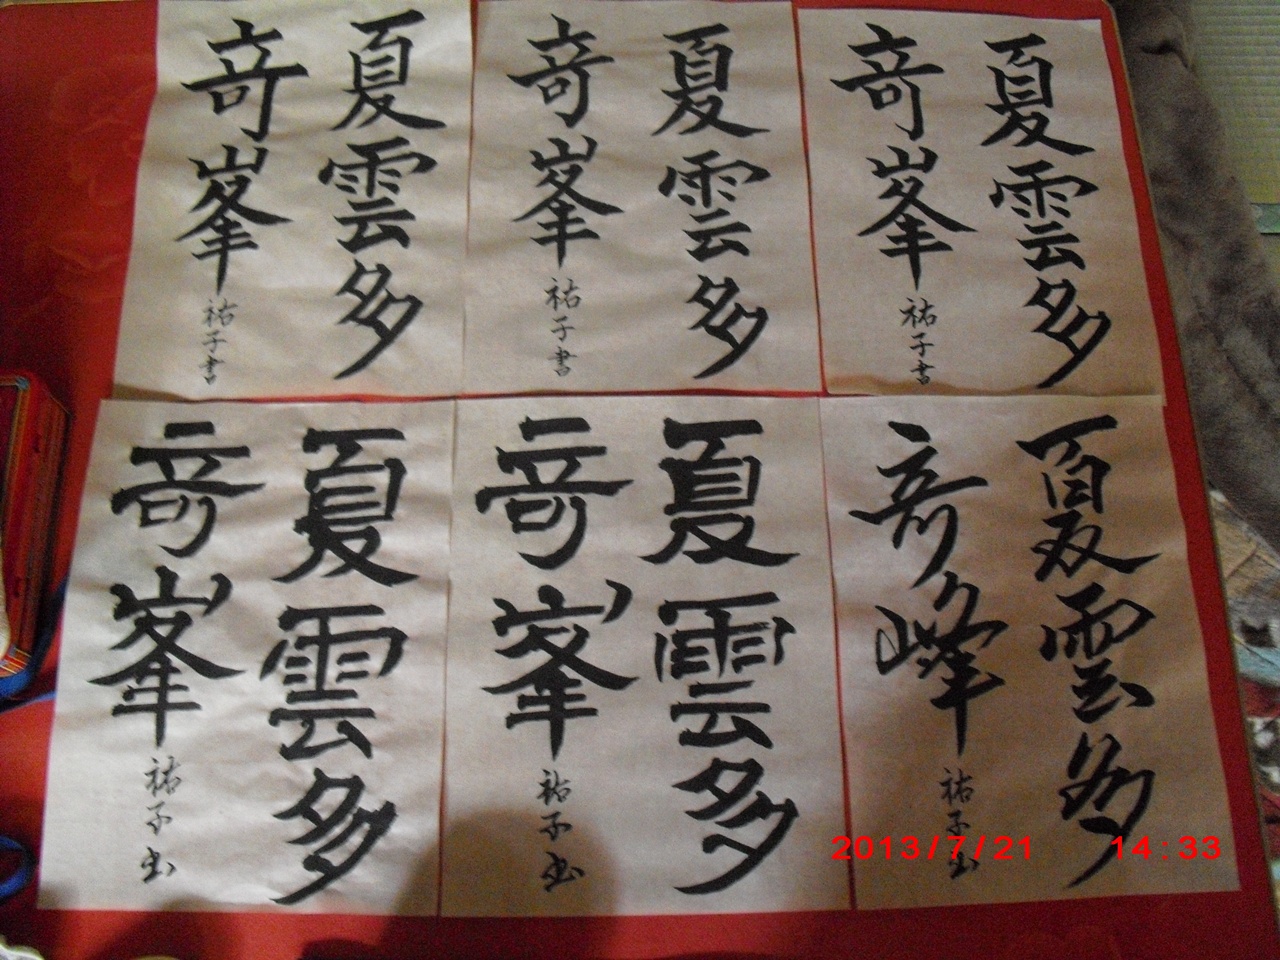 夏雲多
竒峯 祐子書
夏雲多
竒峯 祐子書
夏雲多
竒峯 祐子書
夏雲多
竒峰 祐子書
夏雲多
竒峯 祐子書
夏雲多
竒峯 祐子書
2013/7/21 14:33